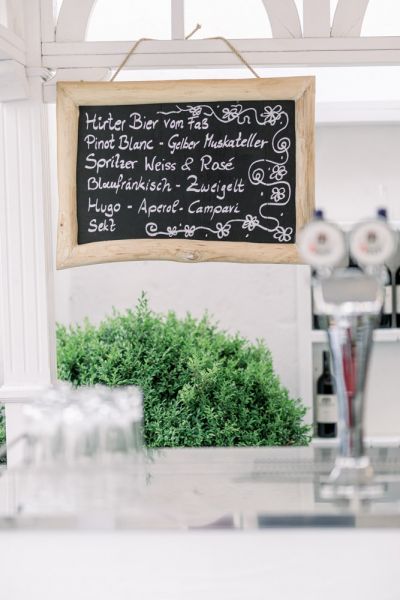 Hirter Bier vom Faß
Pinot Blanc - Gelber Muskateller
Spritzer Weiss & Rosé
Blaufränkisch - Zweigelt
Hugo - Aperol - Campari
Sekt